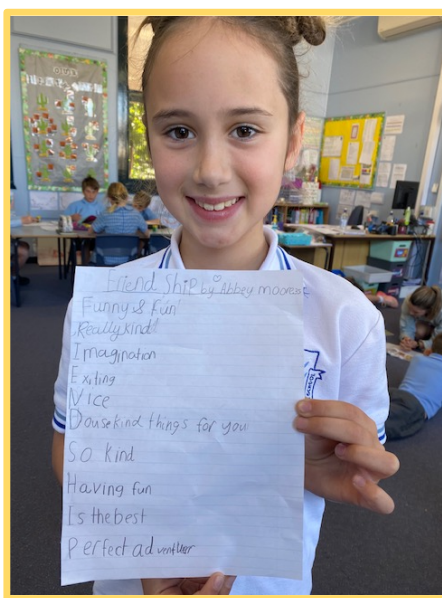 Friend Ship by Abbey moorcat
Funny & fun
Really kind
Imagination
Exiting
Nice
Douse kind things for you
So kind
Having fun
Is the best
Perfect adventuer